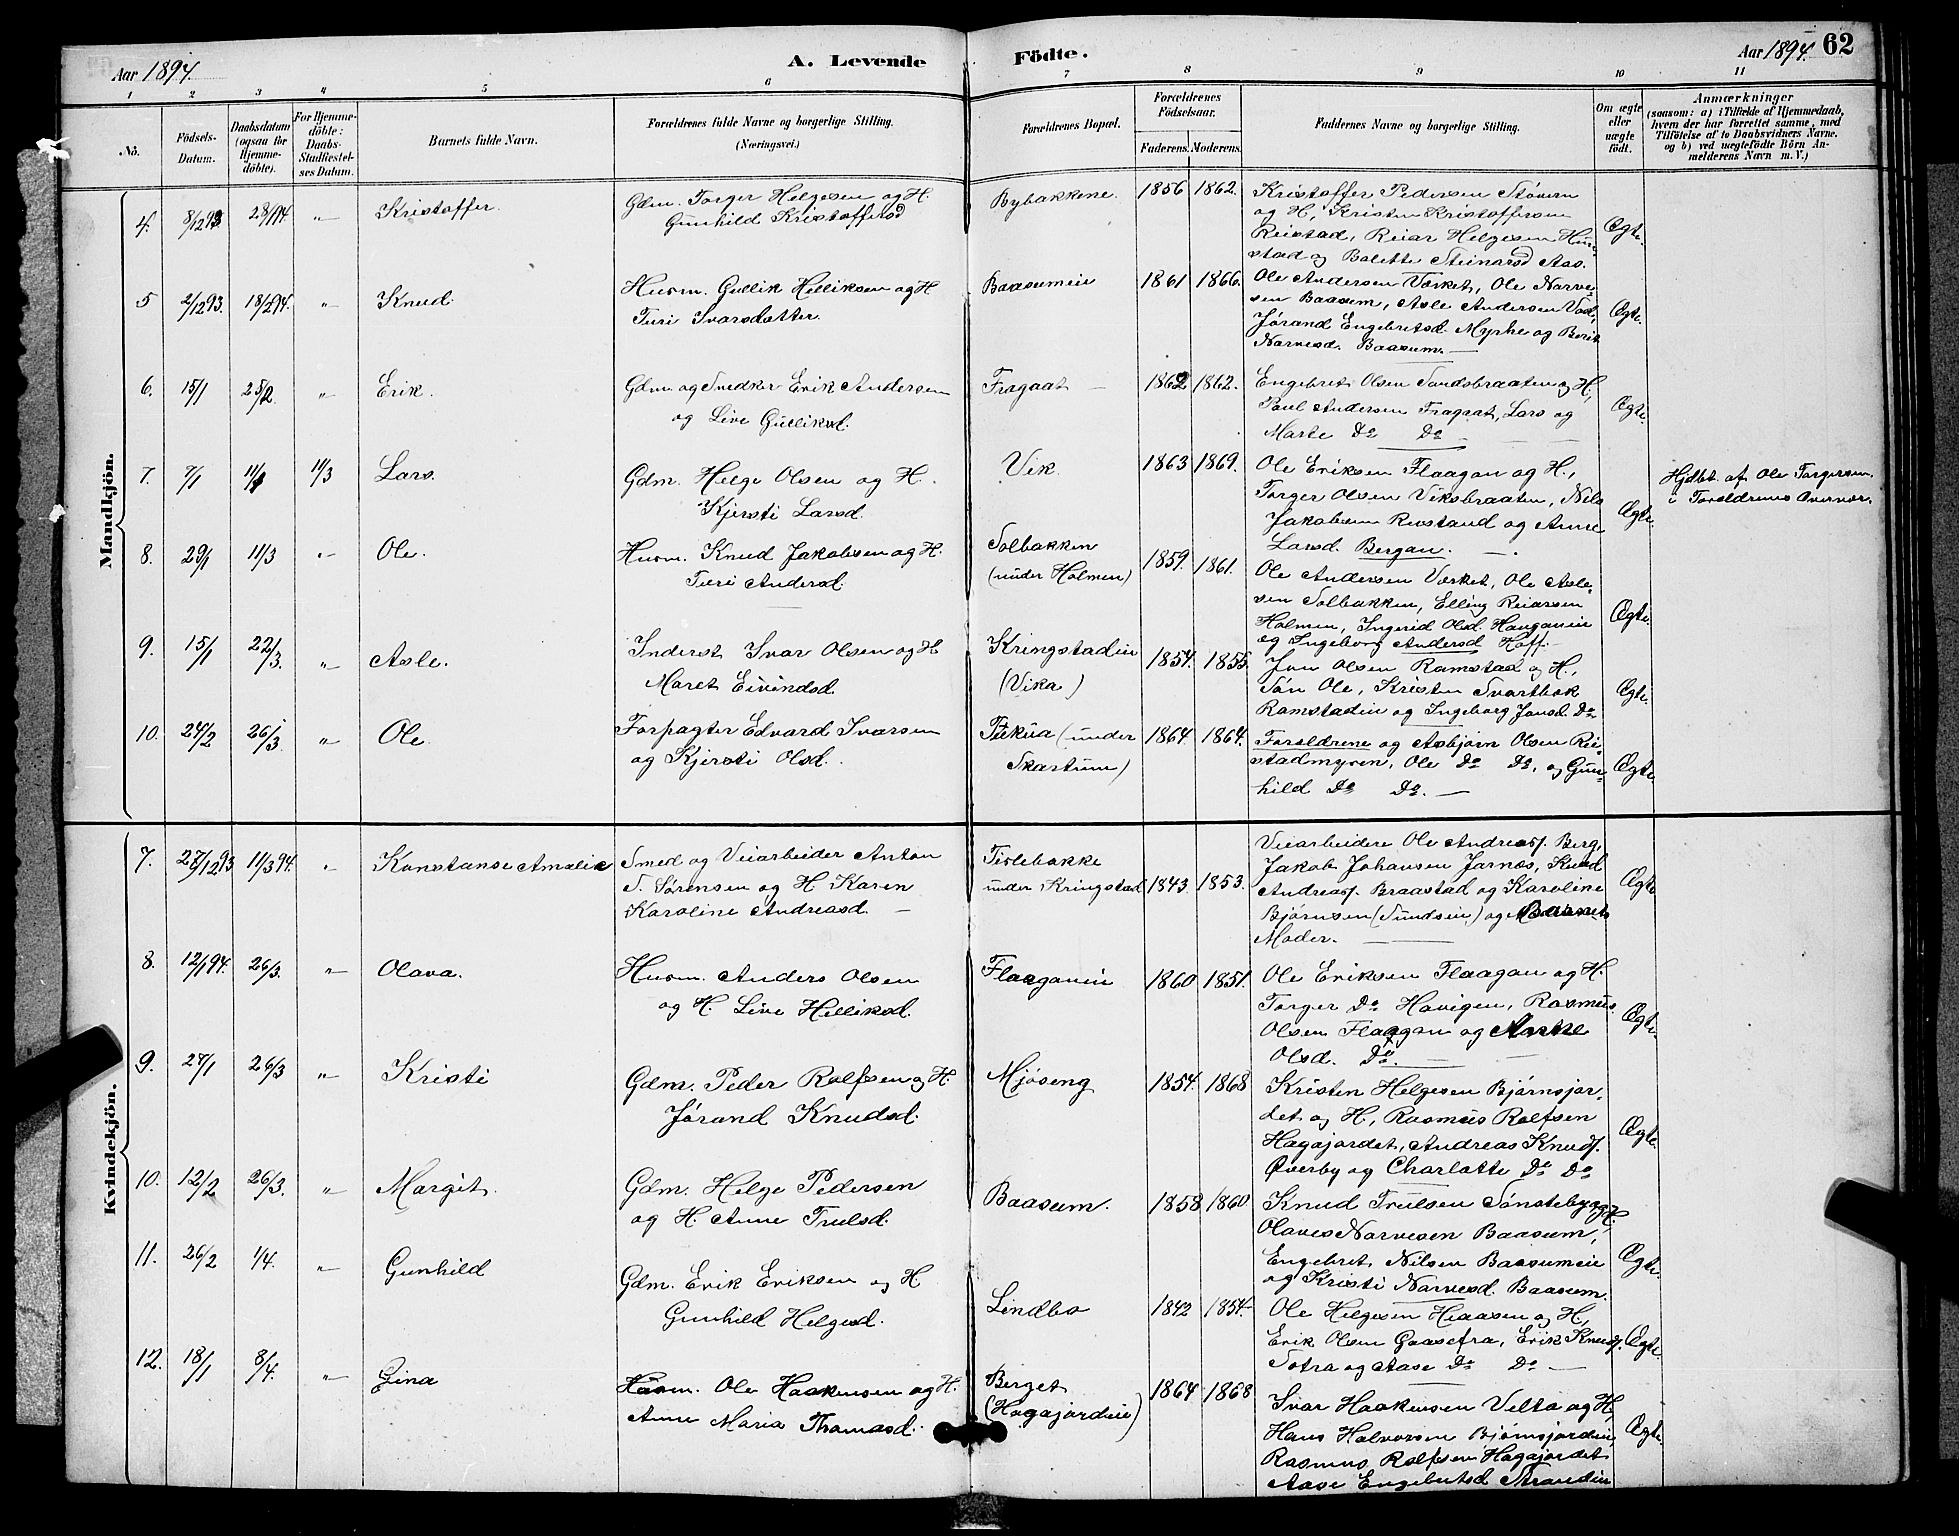 Aar 1894.
A. Levende Födte.
Aar 1894. 62
1 2 3 4 5 6 7 8 9 10 11
No.
Födsels-Datum.
Daabsdatum (ogsaa for Hjemmedöbte).
For Hjemmedöbte: Daabs-Stadfæstelses Datum.
Barnets fulde Navn.
Forældrenes fulde Navne og borgerlige Stilling. (Næringsvei.)
Forældrenes Bopæl.
Forældrenes Födselsaar.
Faderens. Moderens.
Faddernes Navne og borgerlige Stilling.
Om ægte eller uægte födt.
Anmærkninger
(saasom: a) i Tilfælde af Hjemmedaab, hvem der har forrettet samme, med Tilföielse af to Daabsvidners Navne. og b) ved uægtefödte Börn Anmelderens Navn m. V.)
Mandkjön.
4. 8/12 93 28/1 94 " Kristoffer.
Gdm. Torger Helgesen og H.
Gunhild Kristoffersd
Bybakkene. 1856 1862.
Kristoffer Pedersen Støvern
og H, Kristen Kristoffersen
Reistad, Reiar Helgesen Hun-
stad og Bolette Steinarsd Aas.
Ægte.
5 2/12 93. 18/2 94. " Knud.
Husm. Gullik Helliksen og H
Turi Ivarsdatter.
Baasumeie 1861 1866.
Ole Andersen Værket, Ole Narve-
sen Baasum, Asle Andersen Vad,
Jørand Engebretsd. Myrhe og Berit
Narvesd. Baasum. —
Ægte.
6. 15/1 25/2. " Erik.
Gdm. og Snedker Erik Andersen
og Live Gulliksd.
Fragaat — 1862 1862.
Engebret Olsen Sandsbraaten og H,
Poul Andersen Fragaat, Lars og
Marte Do Do —
Ægte.
7. 7/1 11/1 11/3 Lars.
Gdm. Helge Olsen og H.
Kjersti Larsd.
Vik. 1863 1869.
Ole Eriksen Flaagan og H.,
Torger Olsen Viksbraaten, Nils
Jakobsen Reistand og Anne
Larsd. Bergan. —
Ægte.
Hjdbt. af Ole Torgersen
i Forældrenes Overvær.
8. 29/1 11/3 " Ole.
Husm. Knud Jakobsen og H.
Turi Andersd.
Solbakken
(under Holmen) 1859. 1861.
Ole Andersen Værket, Ole Asle-
sen Solbakken, Elling Reiarsen
Holmen, Ingerid Olsd. Hauganeie
og Ingeborg Andersd Hoff. —
Ægte.
9. 15/1 22/3. " Asle.
Inderst Ivar Olsen og H
Maret Eivindsd.
Kringstadeie
(Vika) 1854. 1855.
Jon Olsen Ramstad og H.,
Søn Ole, Kristen Svartbæk
Ramstadeie og Ingeborg Jonsd. Do
Ægte.
10. 24/2 26/3. " Ole.
Forpagter Edvard Ivarsen
og Kjersti Olsd.
(under
Skartum) 1864 1864.
Forældrene og Asbjørn Olsen Rei-
stadmyren, Ole Do Do, og Gun-
hild Do Do. —
Ægte.
Kvindekjön.
7. 27/12 93 11/3 94. " Konstanse Amalie
Smed og Veiarbeider Anton
S. Sørensen og H Karen
Karoline Andreasd. —
Tislebakke
under Kringstad 1843. 1853.
Veiarbeidere Ole Andreasf. Berg,
Jakob Johansen Jarnæs, Knud
Andreasf. Braastad og Karoline
Bjørnsen (Sundseie) og Barnets
Moder. —
Ægte
8. 12/1 94. 26/3. " Olava.
Husm. Anders Olsen
og H. Live Helliksd.
Flaaganeie 1860 1851.
Ole Eriksen Flaagan og H.
Torger Do Havigen, Rasmus
Olsen Flaagan og
Olsd. Do. —
Ægte.
9. 27/1 26/3 " Kristi
Gdm. Peder Rolfsen og H.
Jørand Knudsd.
Mjøseng 1854. 1868
Kristen Helgesen Bjørnsjor-
det og H, Rasmus Rolfsen
Hagajordet, Andreas Knudf.
Øverby og Charlotte Do Do
Ægte.
10. 12/2 26/3. " Margit.
Gdm. Helge Pedersen
og H. Anne Trulsd.
Baasum. 1858 1860
Knud Trulsen Sønsteby og H,
Olaves Narvesen Baasum,
Engebret Nilsen Baasumeie
og Kristi Narvesd. Baasum.
Ægte.
11. 26/2 1/4. " Gunhild
Gdm. Erik Eriksen og H
Gunhild Helgesd.
Lindbo 1842 1854.
Ole Helgesen Haasen og H,
Erik Olsen Gaasefra, Erik Knudf.
Sotra og Aase Do Do —
Ægte.
12. 18/1 8/4. " Gina
Husm. Ole Haakensen og H.
Anne Maria Thomasd.
Berget
(Hagajordeie) 1864 1868
Ivar Haakensen Velta og H,
Hans Halvorsen Bjørnsjordeie,
Rasmus Rolfsen Hagajordet
Aase Engebretsd Strandeie
Ægte.